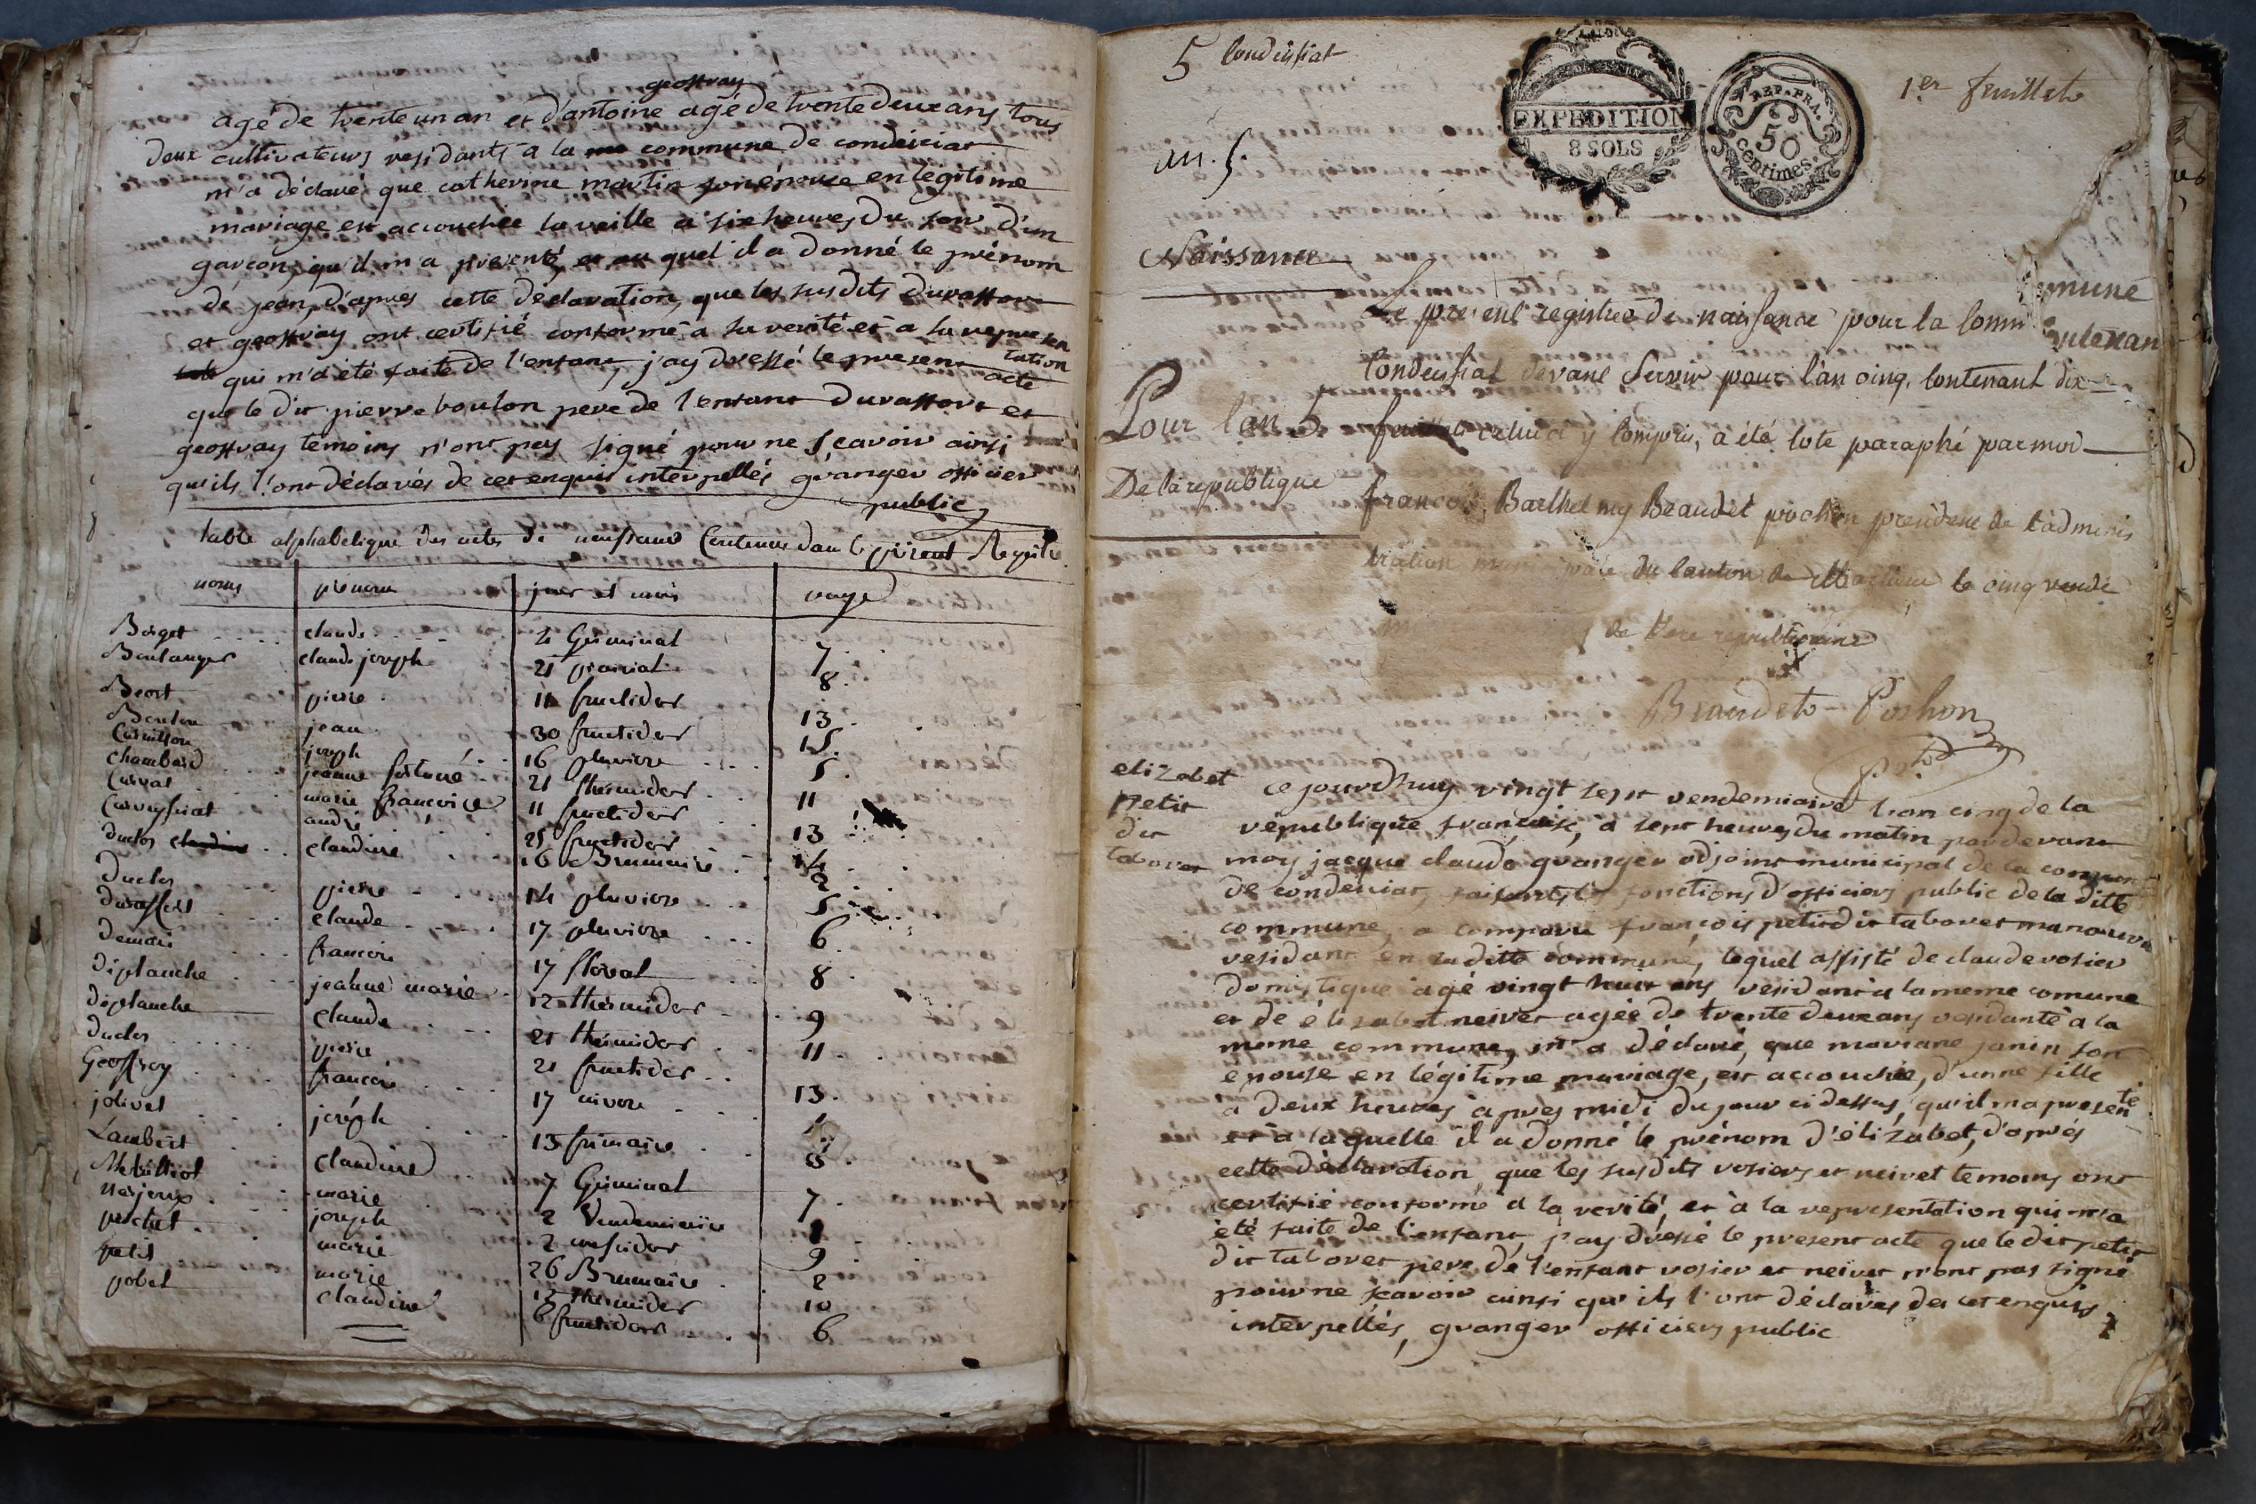 geoffray
agé de trente un an et d'antoine agé de trente deux ans tous
deux cultivateurs residants a la commune de condeiciat
m'a déclaré que catherine martin son épouse en legitime
mariage est accouchée la veille a six heures du soir d'un
garcon, qu'il m'a presenté et au quel il a donné le prénom
de jean, d'apres cette déclaration, que les susdits durassort
et geoffray ont certifié conforme a la verité et a la represen
tation
qui m'a été faite de l'enfant, j'ay dressé le present acte
que le dit pierre boulon pere de l'enfant durassort et
geoffray temoins n'ont pas signé pour ne sçavoir ainsi
qu'ils l'ont déclarés de cet enquis interpellés granger officier
public
table alphabetique des actes de naissance Contenus dans le présent Registre
noms prenoms jours et mois page
Borget claude 2 Germinal 7
Boulanger claude joseph 21 prairial 8
Beort pierre 11 fructidor 13
Boulon jean 30 fructidor 15
joseph 16 pluviose 5
Chambard jeanne 21 thermidor 11
Curval marie francoise 11 fructidor 13
andré 25 fructidor 14
Duclos claudine 16 Brumaire 2
Duclos pierre 14 pluviose 5
Durassort claude 17 pluviose 6
Demais francois 17 floreal 8
Diplanche jeanne marie 12 thermidor 9
Diplanche claude 21 thermidor 11
Duclos pierre 21 fructidor 13
Geoffroy francois 17 nivose
jolivet joseph 13 frimaire
Lambert claudine 7 Germinal 7
marie 2 Vendemiaire 1
joseph 2 messidor 9
pochet marie 26 Brumaire 2
petit marie 12 thermidor 10
pobel claudine 6 fructidor 6
5 Condeissiat
1er feuillet
EXPEDITION
8 SOLS
REP. FRA.
50
centimes.
an. 5.
Naissance
Pour l'an 5
De la republique
Le present registre de naissance pour la Comm
mune
Condeissiat devant Servir pour l'an cinq, Contenant dix
feuillets celui ci y Compris, a été Cote paraphé par moi
francois Barthelmy Beaudet pochon president de l'adminis
tration du Canton de le cinq vendé
de l'ere republicaine
Beaudet Pochon
elizabet
petit
dit
tabouret
ce jourd'huy vingt sept vendemiaire l'an cinq de la
république française, a sept heures du matin par devant
moy jacque claude granger adjoint municipal de la commune
de condeiciat, faisant les fonctions d'officiers public de la ditte
commune, a comparu françois petit dit tabouret manouvre
residant en la ditte commune, lequel assisté de claude vosier
domestique agé vingt huit ans residant a la meme comune
et de élizabet neivet agée de trente deux ans residante a la
meme commune, m'a déclaré, que mariane janin son
epouse en légitime mariage, est accouchée, d'unne fille
a deux heures apres midi du jour ci dessus, qu'il m'a presenté
et a laquelle il a donné le prénom d'élizabet, d'aprés
cette déclaration que les susdits vosiers et neivet temoins ont
certifié conforme a la verité, et à la representation qui m'a
été faite de l'enfant, j'ay dressé le present acte que le dit petit
dit tabouret pere de l'enfant vosier et neivet n'ont pas signé
pour ne scavoir ainsi qu'ils l'ont déclarés de cet enquis
interpellés, granger officiers public